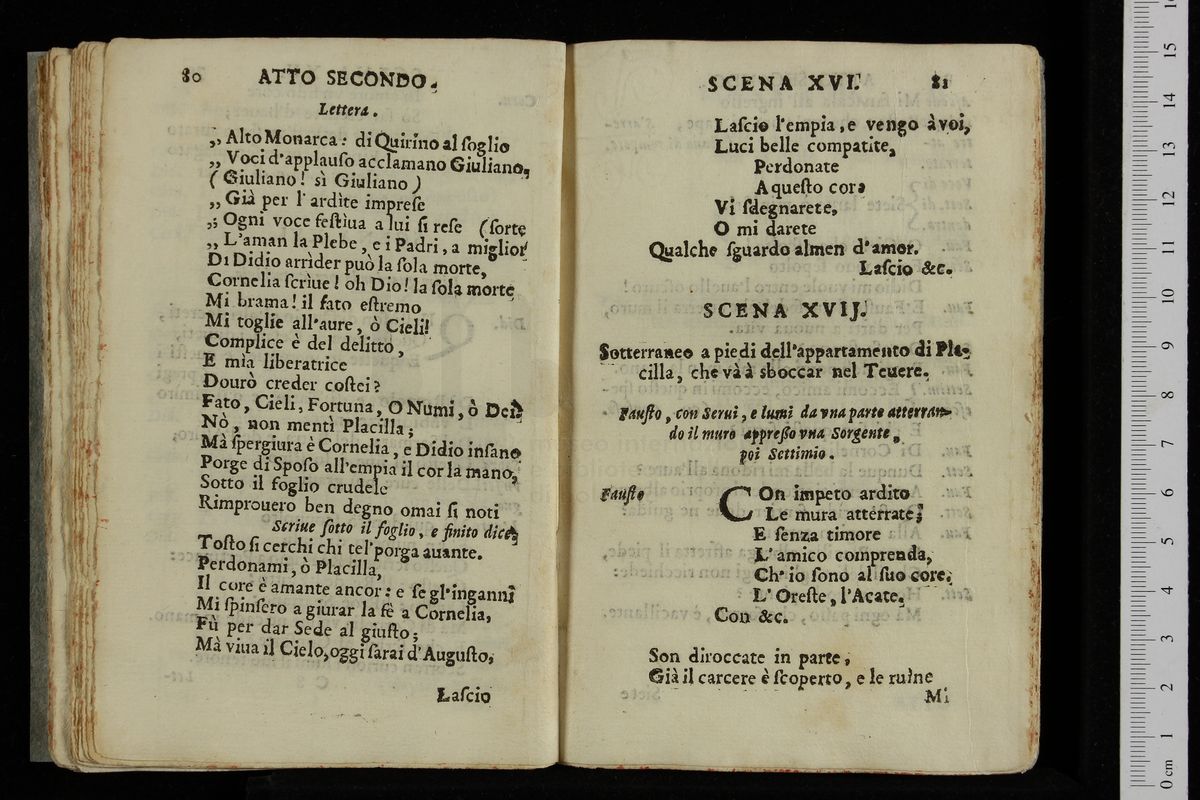 80 ATTO SECONDO.
Lettera.
„ Alto Monarca: di Quirino al ſoglio
„ Voci d'applauſo acclamano Giuliano,
( Giuliano! sì Giuliano )
„ Già per l'ardìte impreſe
„ Ogni voce feſtiua a lui ſi reſe (ſorte
„ L'aman la Plebe, e i Padri, a miglior
Di Didio arrìder può la ſola morte,
Cornelia ſcriue! oh Dio! la ſola morte
Mi brama! il fato eſtremo
Mi toglie all'aure, ò Cieli!
Complice è del delitto,
E mia liberatrice
Dourò creder coſtei?
Fato, Cieli, Fortuna, O Numi, ò Dei?
Nò, non mentì Placilla;
Mà ſpergiura è Cornelia, e Didio inſano
Porge di Spoſo all'empia il cor la mano,
Sotto il foglio crudele
Rimprouero ben degno omai ſi noti
Scriue ſotto il foglio, e finito dice,
Toſto ſi cerchi chi tel'porga auante.
Perdonami, ò Placilla,
Il core è amante ancor: e ſe gl'inganni
Mi ſpinſero a giurar la fè a Cornelia,
Fù per dar Sede al giuſto;
Mà viua il Cielo, oggi ſarai d'Auguſto,
Laſcio
SCENA XVI. 81
Laſcio l'empia, e vengo à voi,
Luci belle compatite,
Perdonate
A queſto cor,
Vi ſdegnarete,
O mi darete
Qualche ſguardo almen d'amor.
Laſcio &c.
SCENA XVIJ.
Sotterraneo a piedi dell'appartamento di Pla-
cilla, che và à sboccar nel Teuere.
Fauſto, con Serui, e lumi da vna parte atterran-
do il muro appreſſo vna Sorgente,
poi Settimio.
Fauſto COn impeto ardito
Le mura atterrate;
E ſenza timore
L'amico comprenda,
Ch'io ſono al ſuo core,
L'Oreſte, l'Acate.
Con &c.
Son diroccate in parte,
Già il carcere è ſcoperto, e le ruìne
Mi